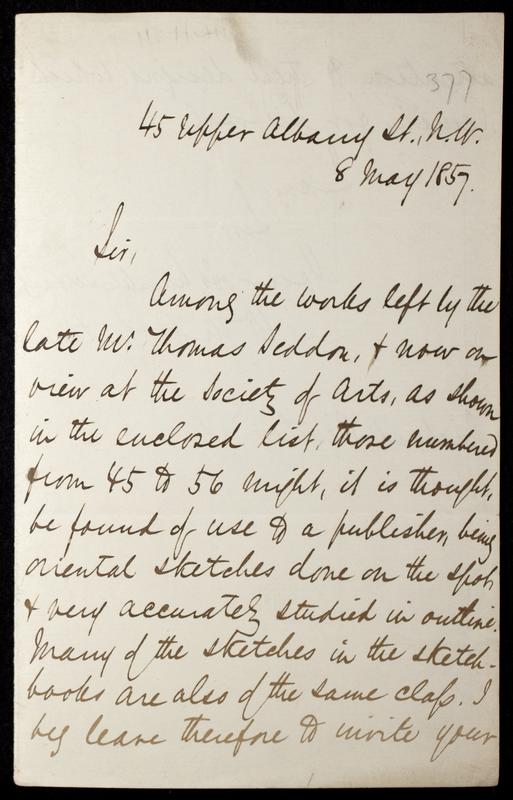 377
45 Upper Albany St., N.W.
8 May 1857.
Sir,
Among the works left by the
late Mr. Thomas Seddon, & now on
view at the Society of Arts, as shown
in the enclosed list, those numbered
from 45 to 56 might, it is thought,
be found of use to a publisher, being
oriental sketches done on the spot,
& very accurately studied in outline.
Many of the sketches in the sketch-
books are also of the same class. I
beg leave therefore to invite your